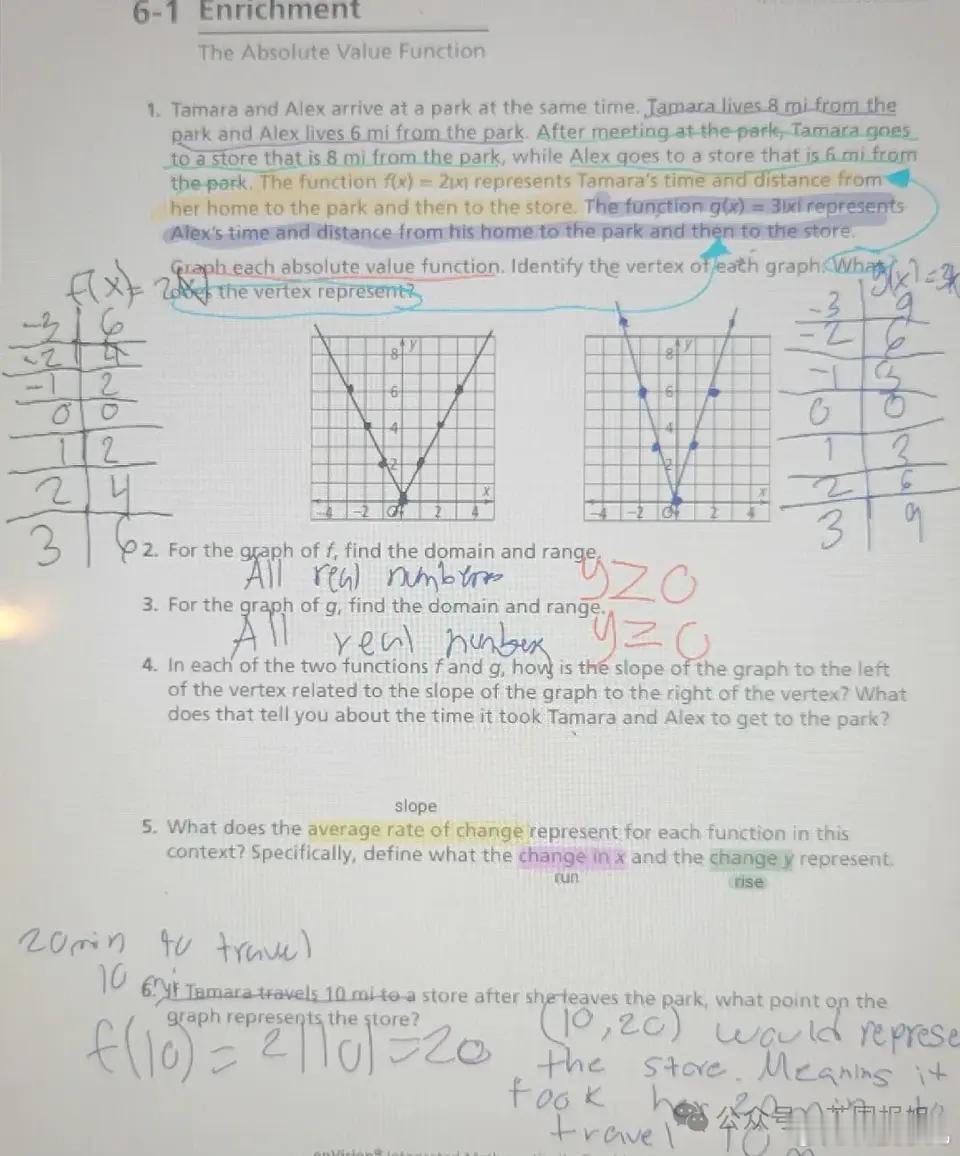 6-1 Enrichment
The Absolute Value Function
1. Tamara and Alex arrive at a park at the same time. Tamara lives 8 mi from the
park and Alex lives 6 mi from the park. After meeting at the park, Tamara goes
to a store that is 8 mi from the park, while Alex goes to a store that is 6 mi from
the park. The function f(x) = 2|x| represents Tamara's time and distance from
her home to the park and then to the store. The function g(x) = 3|x| represents
Alex's time and distance from his home to the park and then to the store.
Graph each absolute value function. Identify the vertex of each graph. What
does the vertex represent?
f(x) = 2|x|
-3 6
-2 4
-1 2
0 0
1 2
2 4
3 6
8 y
6
4
2
x
-4 -2 O 2 4
8 y
6
4
2
x
-4 -2 O 2 4
g(x) = 3x
-3 9
-2 6
-1 3
0 0
1 3
2 6
3 9
2. For the graph of f, find the domain and range.
All real numbers y≥0
3. For the graph of g, find the domain and range.
All real number y≥0
4. In each of the two functions f and g, how is the slope of the graph to the left
of the vertex related to the slope of the graph to the right of the vertex? What
does that tell you about the time it took Tamara and Alex to get to the park?
slope
5. What does the average rate of change represent for each function in this
context? Specifically, define what the change in x and the change y represent.
run rise
20min to travel
10 mi
6. If Tamara travels 10 mi to a store after she leaves the park, what point on the
graph represents the store?
f(10) = 2|10| = 20
(10,20) would represe
the store. Meaning it
took her 20 min to
travel 10 m
公众号